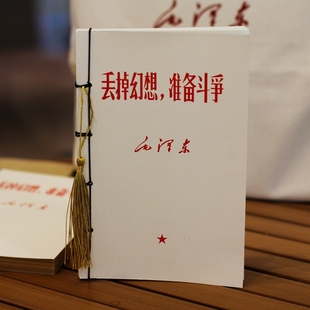 丢掉幻想，准备斗争
毛泽东
丢掉幻想，准备
毛泽东